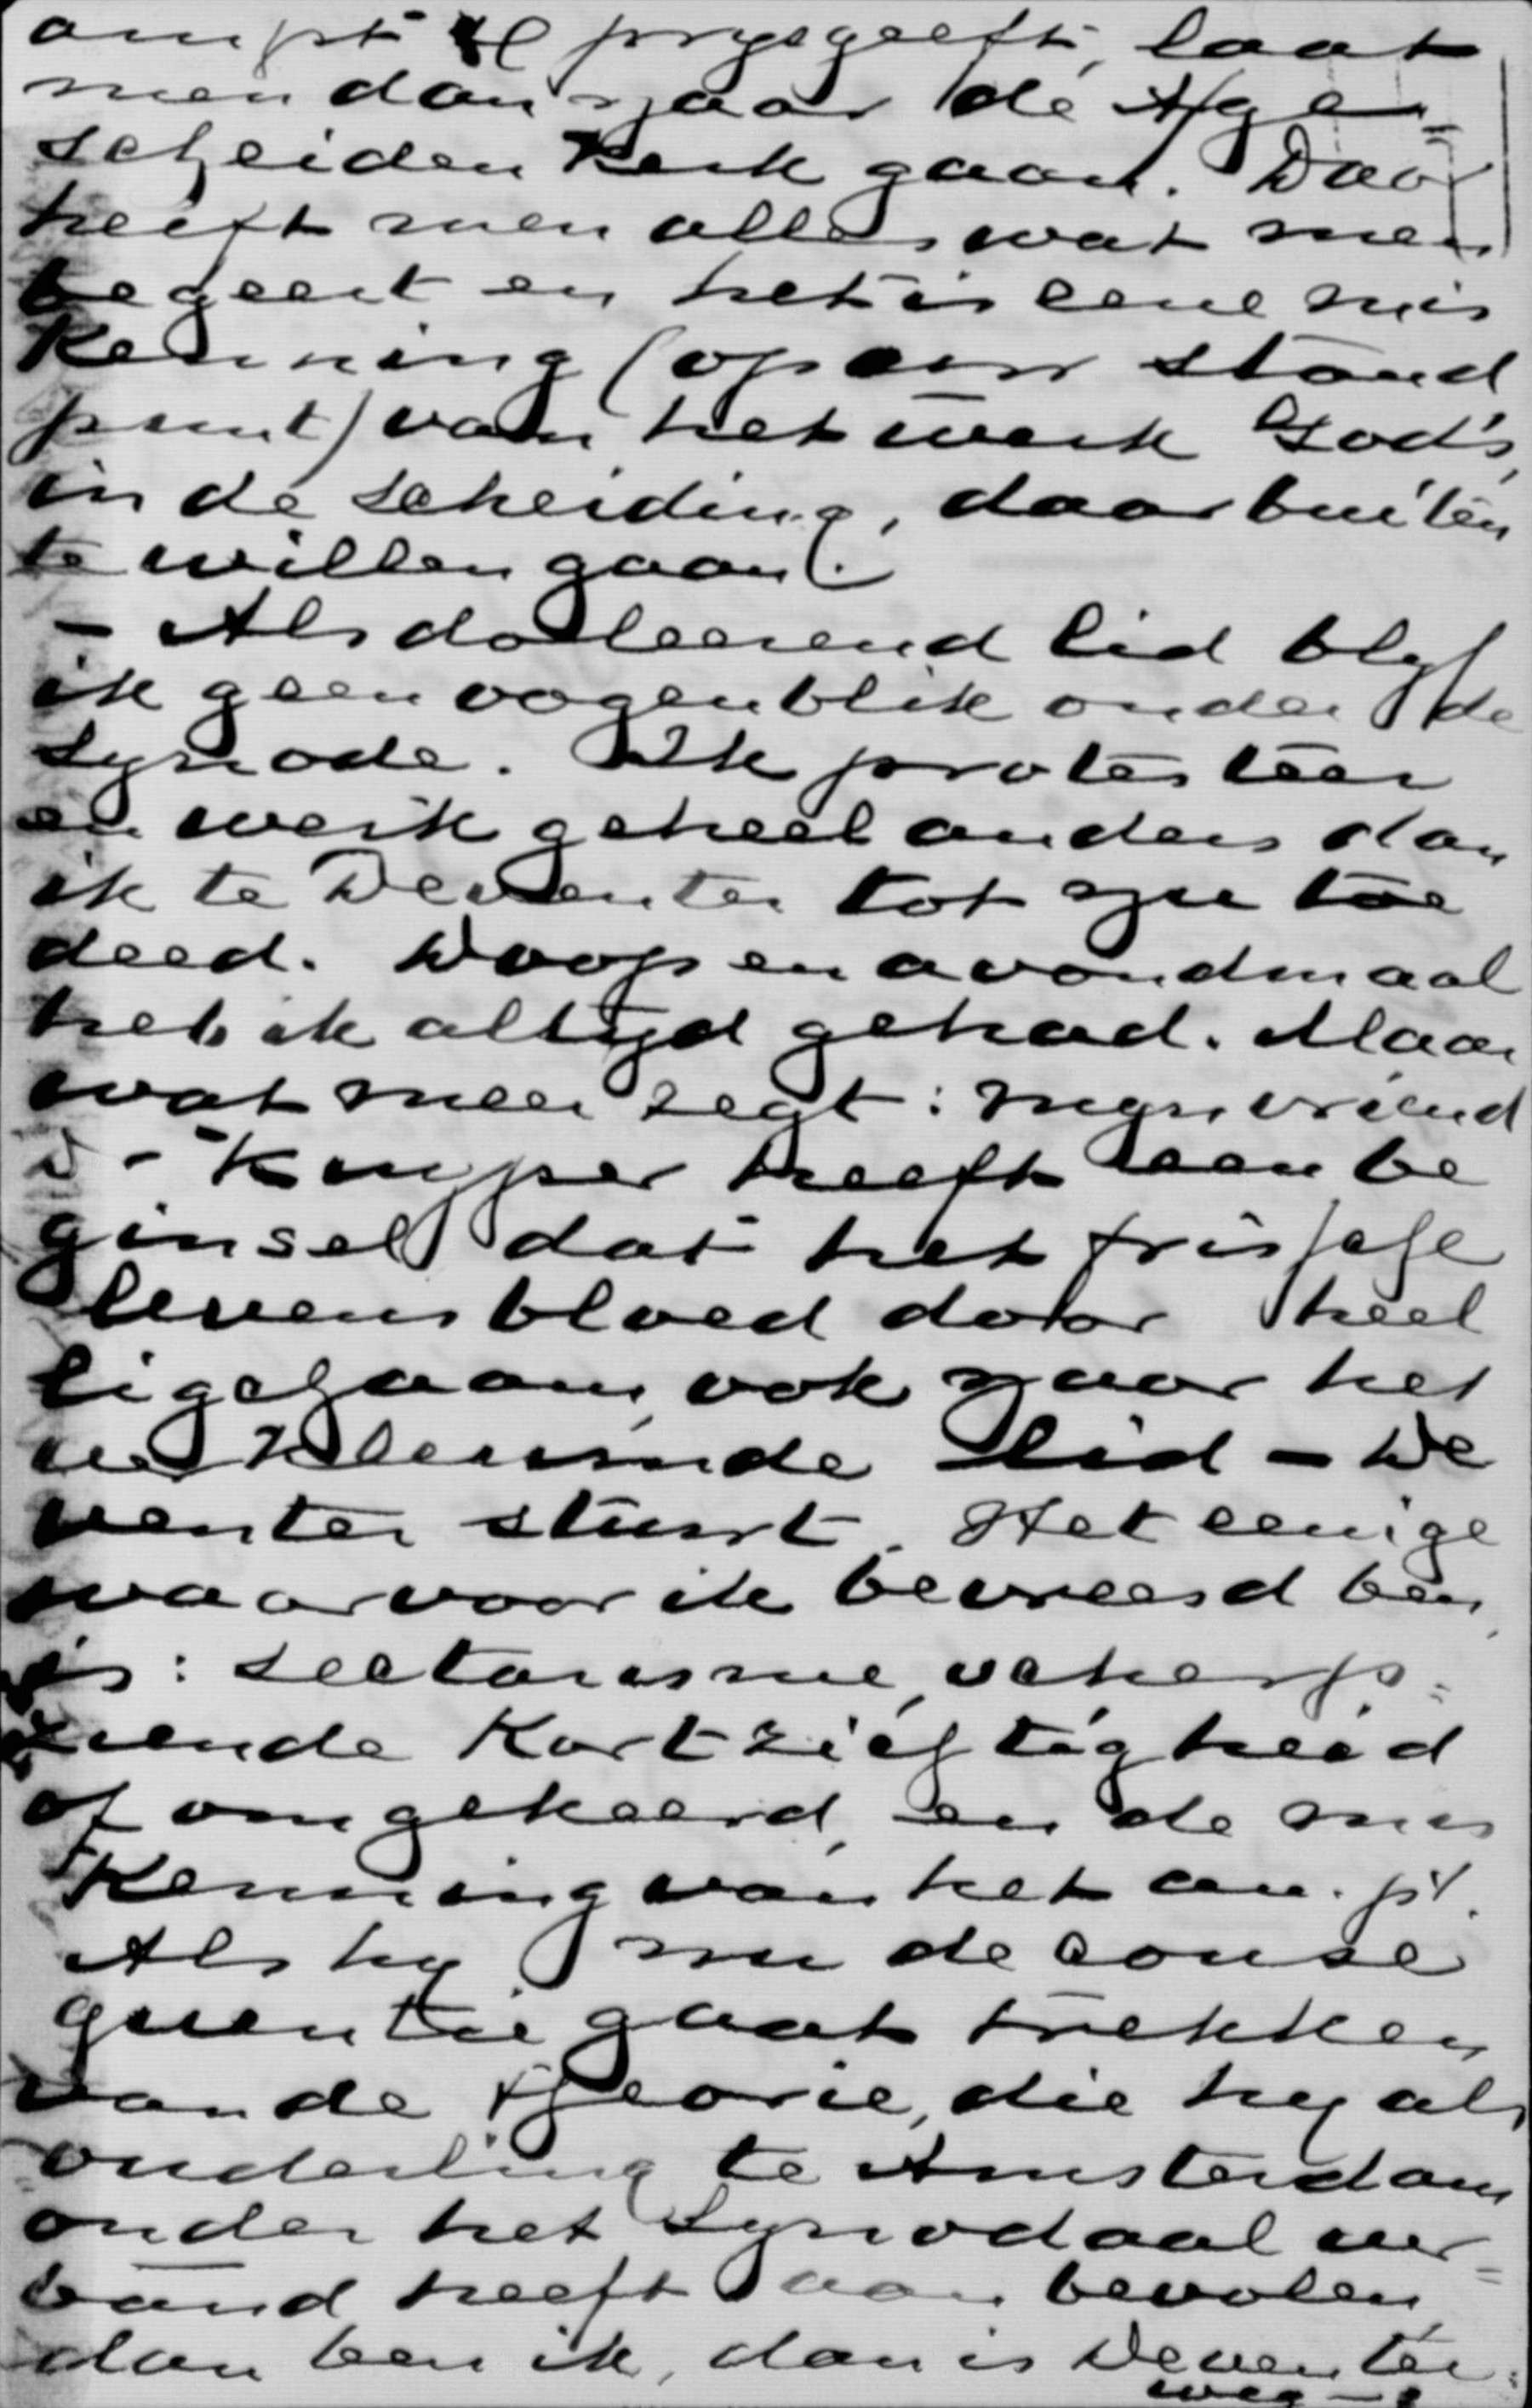 ampt prysgeeft, laat
men dan naar de Afge=
scheiden Kerk gaan. Daar
heeft men alles wat men
begeert en het is eene mis
kenning (op ons stand
punt) van het werk God's,
in de scheiding, daarbuiten
te willen gaan!
- Als doleerend lid blyf
ik geen oogenblik onder de
Synode. Ik protesteer
en werk geheel anders dan
ik te Deventer tot nu toe
deed. Doop en avondmaal
heb ik altyd gehad. Maar
wat meer zegt: myn vriend
Dr Kuyper heeft een be
ginsel dat het frissche
levensbloed door heel
ligchaam, ook naar het
verkleumde lid - De
venter stuurt. Het eenige
waarvoor ik bevreesd ben,
is: sectarisme, scherp=
ziende Kortzichtigheid
of omgekeerd, en de mis
Kenning van het am. pt.
Als hy nu de conse
quentie gaat trekken
van de theorie, die hy als
ouderling te Amsterdam
onder het Synodaal ver=
band heeft aanbevolen,
dan ben ik, dan is Deventer
weg - !